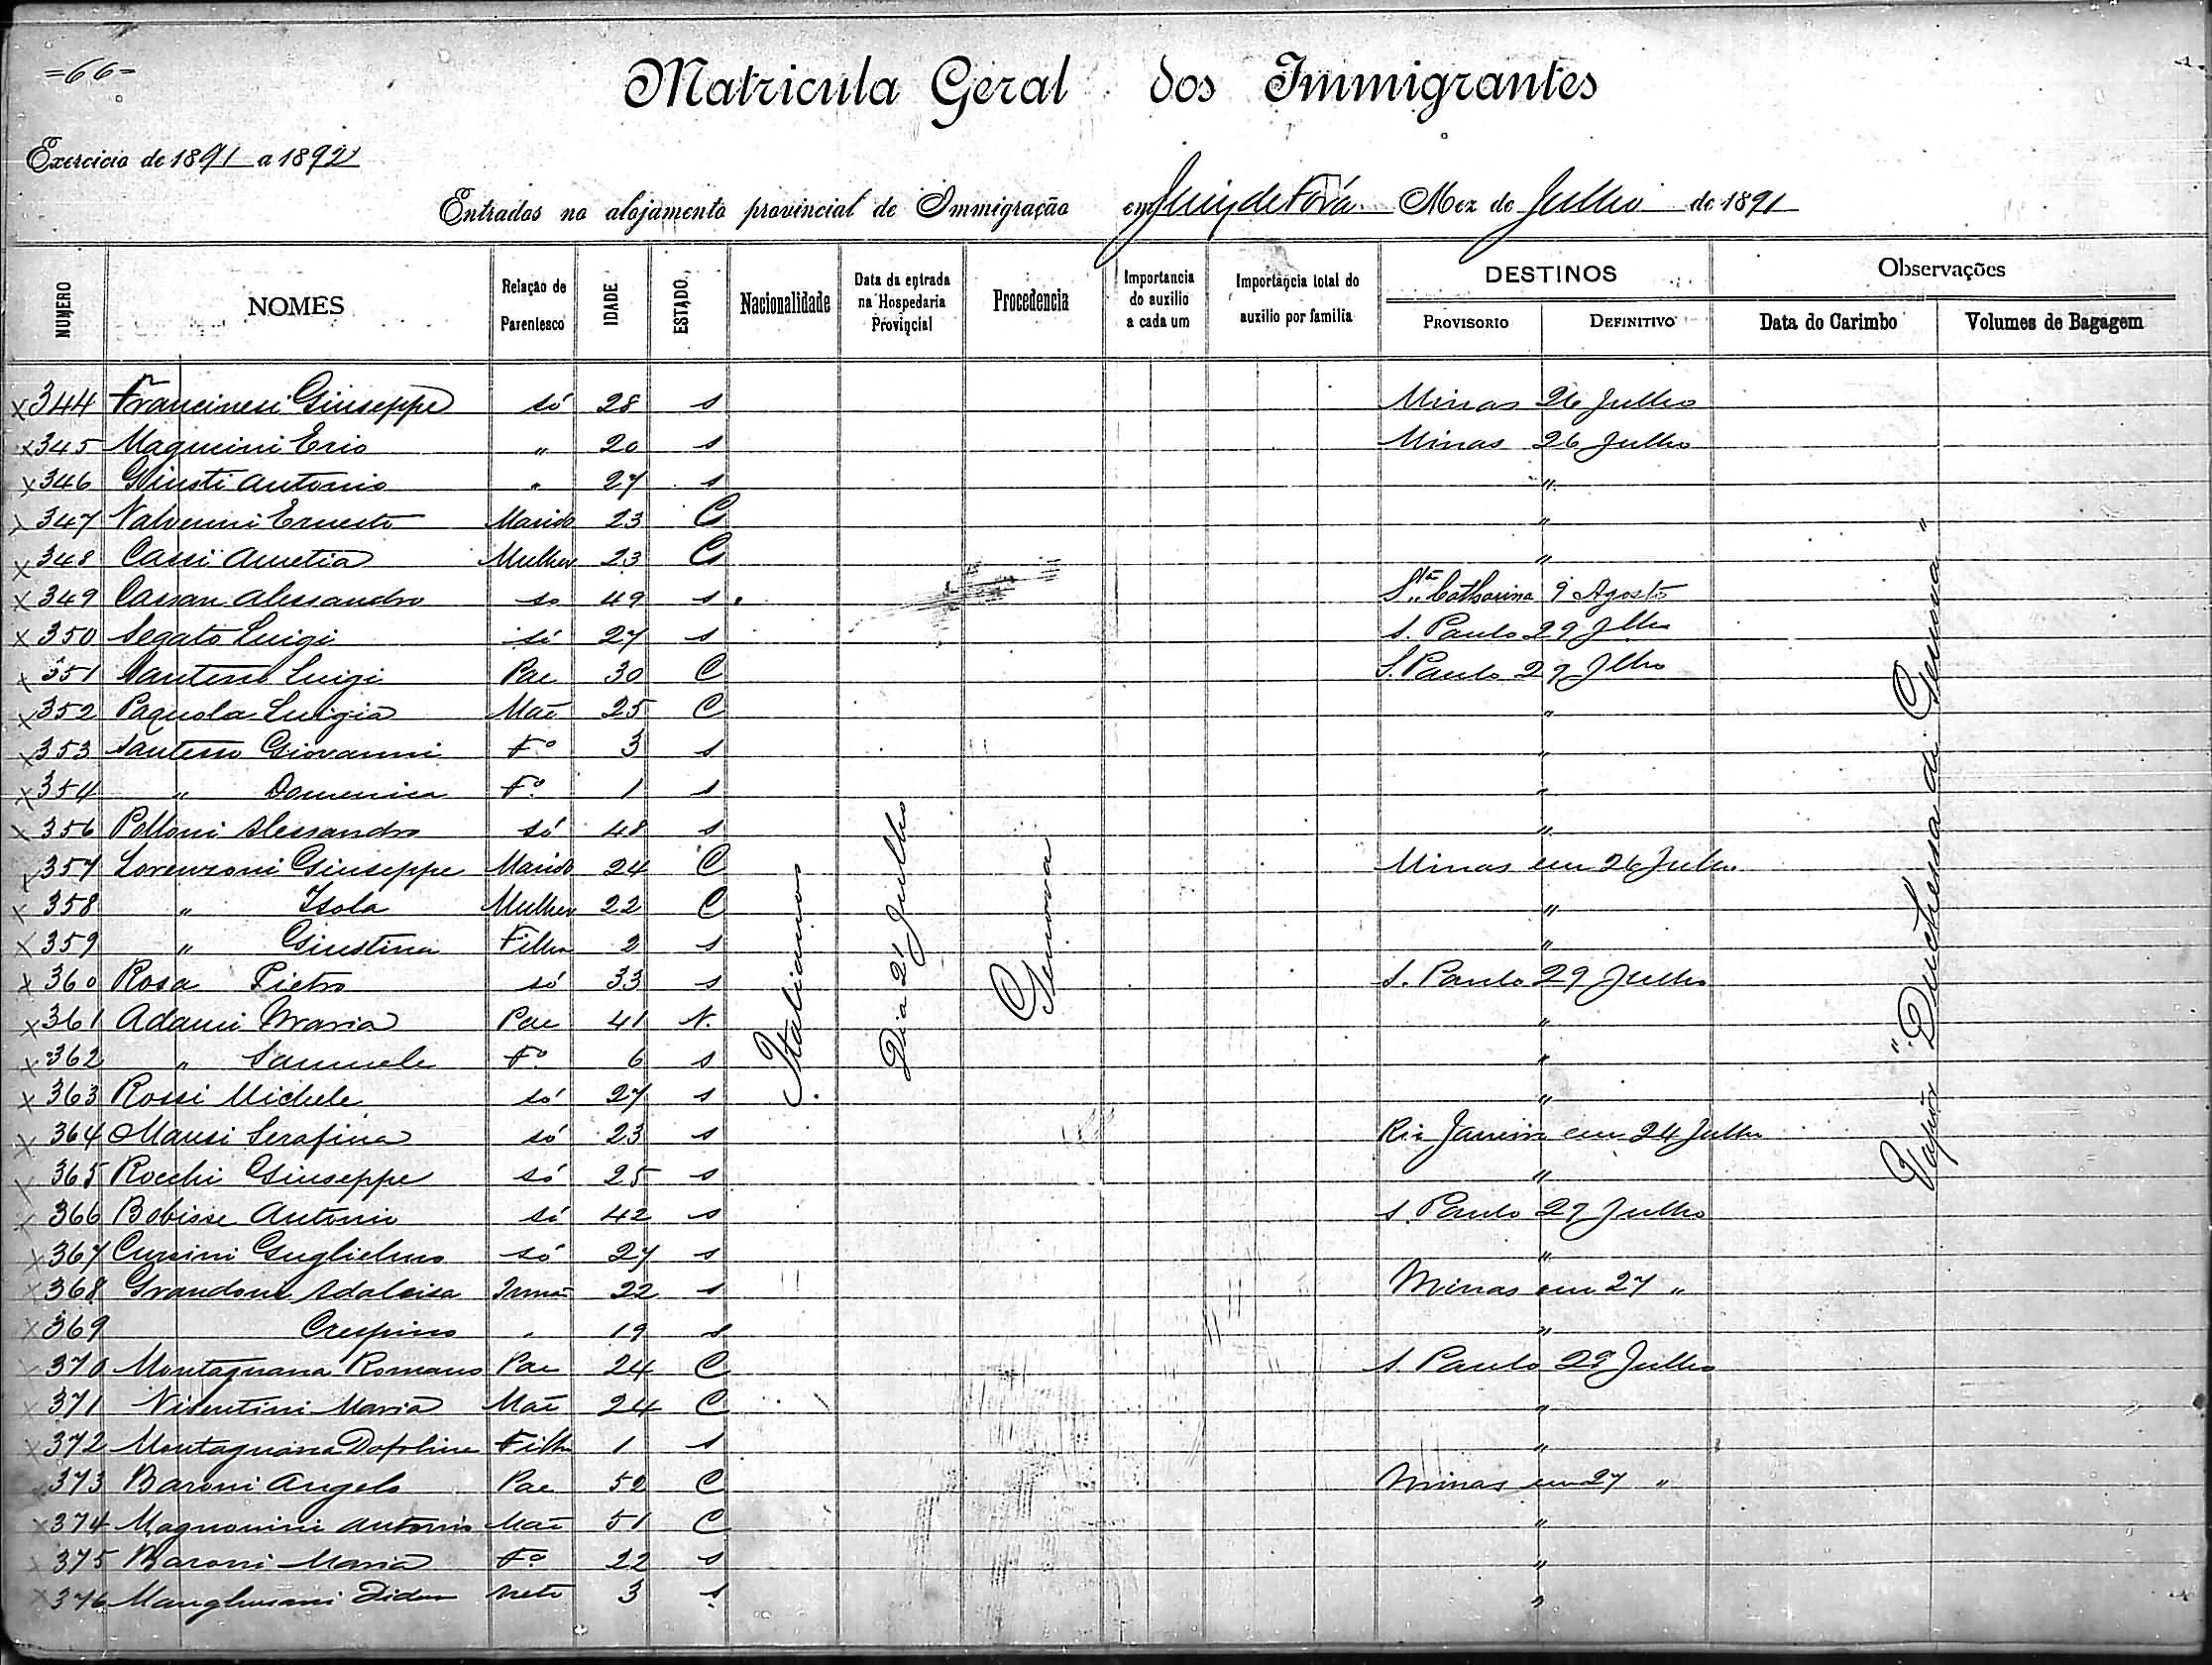 =66=
Matricula Geral dos Immigrantes
Exercicio de 1891 a 1892
Entrados no alojamento provincial de Immigração em Juiz de Fóra Mez de Julho de 1891
NUMERO NOMES Relação de Parentesco IDADE ESTADO Nacionalidade Data da entrada na Hospedaria Provincial Procedencia Importancia do auxilio a cada um Importancia total do auxilio por familia DESTINOS PROVISORIO DEFINITIVO Observações Data do Carimbo Volumes de Bagagem
x 344 Giuseppe só 28 s Minas 26 Julho
x 345 Erio " 20 s Minas 26 Julho
x 346 Giusti Antonio " 27 s "
x 347 Ernesto Marido 23 C "
x 348 Mulher 23 C "
x 349 Cassan Alessandro so 49 s Sta Catharina 9 Agosto
x 350 Segato Luigi só 27 s S. Paulo 29 Jlho
x 351 Luigi Pae 30 C S. Paulo 29 Jlho
x 352 Luigia Mai 25 C "
x 353 Giovanni Fo 3 s "
x 354 " Domenica Fo 1 s "
x 356 Polloni Alessandro só 48 s "
x 357 Lorenzoni Giuseppe Marido 24 C Minas em 26 Julho
x 358 " Isola Mulher 22 C "
x 359 " Giustina Filha 2 s "
x 360 Rosa Pietro só 33 s S. Paulo 29 Julho
x 361 Adami Maria Pae 41 V. "
x 362 " Samuele Fo 6 s "
x 363 Rossi Michele só 27 s "
x 364 Serafina só 23 s Rio Janeiro em 24 Julho
x 365 Rocchi Giuseppe só 25 s "
x 366 Bobisse Antonio só 42 s S. Paulo 29 Julho
x 367 Guglielmo só 27 s "
x 368 Grandoni Irmã 22 s Minas em 27 "
x 369 Crespino " 19 s "
x 370 Montagnana Romano Pae 24 C S. Paulo 29 Julho
x 371 Visentini Maria Mai 24 C "
x 372 Montagnana Filha 1 s "
373 Baroni Angelo Pae 52 C Minas em 27 "
x 374 Magnonini Mai 51 C "
x 375 Baroni Maria Fa 22 s "
x 376 neto 3 s "
Italianos
Dia 21 Julho
Genova
Vapor "Duchessa di Genova"